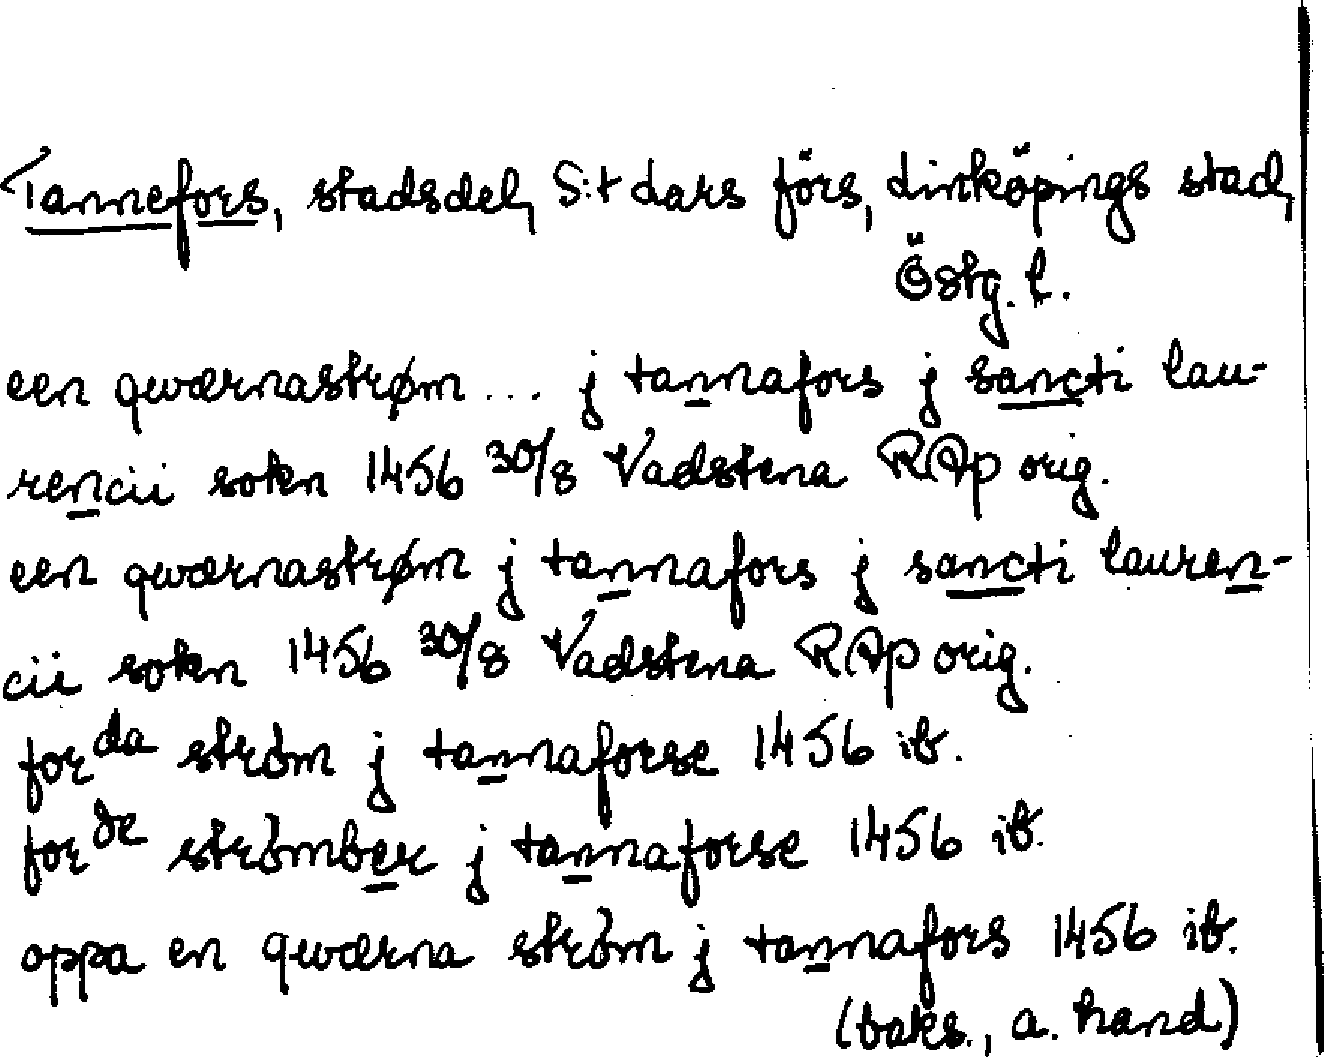 Tannefors, stadsdel, S:t Lars förs, Linköpings stad,
Östg. l.
een qwærnastrøm ... j tannafors j sancti lau-
rencii sokn 1456 30/8 Vadstena RAp orig.
een qwærnastrøm j tannafors j sancti lauren-
cii sokn 1456 30/8 Vadstena RAp orig.
for da strøm j tannaforse 1456 ib.
for de strømber j tannaforse 1456 ib.
oppa en qwærna strøm j tannafors 1456 ib.
(baks., a. hand)